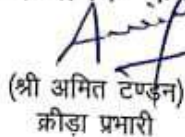 (श्री अमित टण्डन)
क्रीड़ा प्रभारी